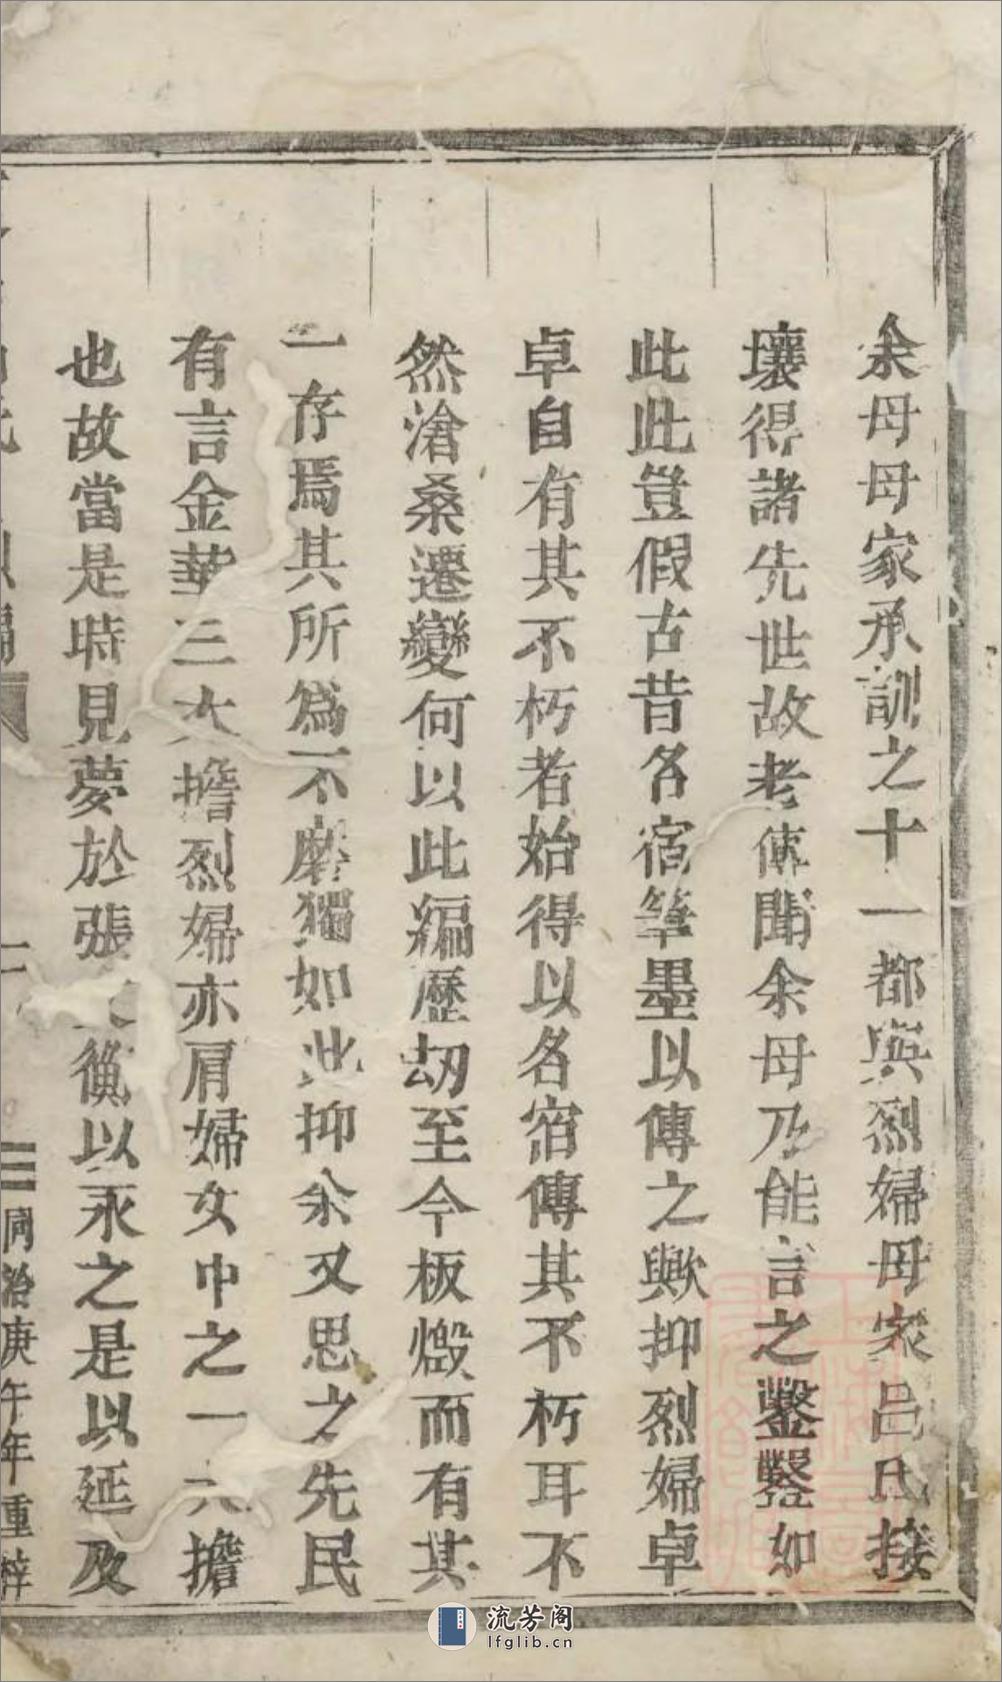 余母母家承訓之十一都與烈婦母家呂氏接
壤得諸先世故老傳聞余母乃能言之鑿鑿如
此此豈假古昔名宿筆墨以傳之歟抑烈婦卓
卓自有其不朽者始得以名宿傳其不朽耳不
然滄桑遷變何以此編歷劫至今板燬而有其
一存焉其所為不磨獨如此抑余又思之先民
有言金華三大擔烈婦亦肩婦女中之一大擔
也故當是時見夢於張 儀以永之是以延及
同治庚午年重梓
流芳阁
lfglib.cn